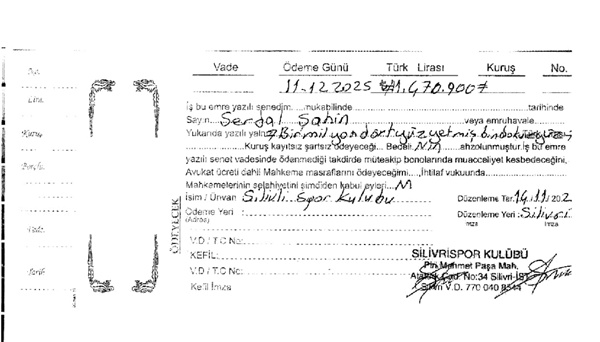 Vade Ödeme Günü Türk Lirası Kuruş No.
11.12.2025 ₺1.470.900≠
İş bu emre yazılı senedim.... mukabilinde tarihinde
Sayın Serdal Şahin veya emruhavale
Yukarıda yazılı yalnız ≠Birmilyondörtyüzyetmişbindokuzyüz≠
Kuruş kayıtsız şartsız ödeyeceği... Bedeli ahzolunmuştur. İş bu emre
yazılı senet vadesinde ödenmediği takdirde müteakip bonolarında muacceliyet kesbedeceğini,
Avukat ücreti dahil Mahkeme masraflarını ödeyeceğimi. İhtilaf vukuunda
Mahkemelerinin selahiyetini şimdiden kabul eyleri...
İsim / Ünvan Silivri Spor Kulubu Düzenleme Tar. 14.11.202
Ödeme Yeri : Düzenleme Yeri : Silivri
(Adroz) İmza İmza
ÖDEYECEK
V.D / T.C No:
KEFİL:
V.D / T.C No:
Kefil İmza
SİLİVRİSPOR KULÜBÜ
Piri Mehmet Paşa Mah.
Atatürk Cad. No:34 Silivri-İST
Silivri V.D. 770 040 8544